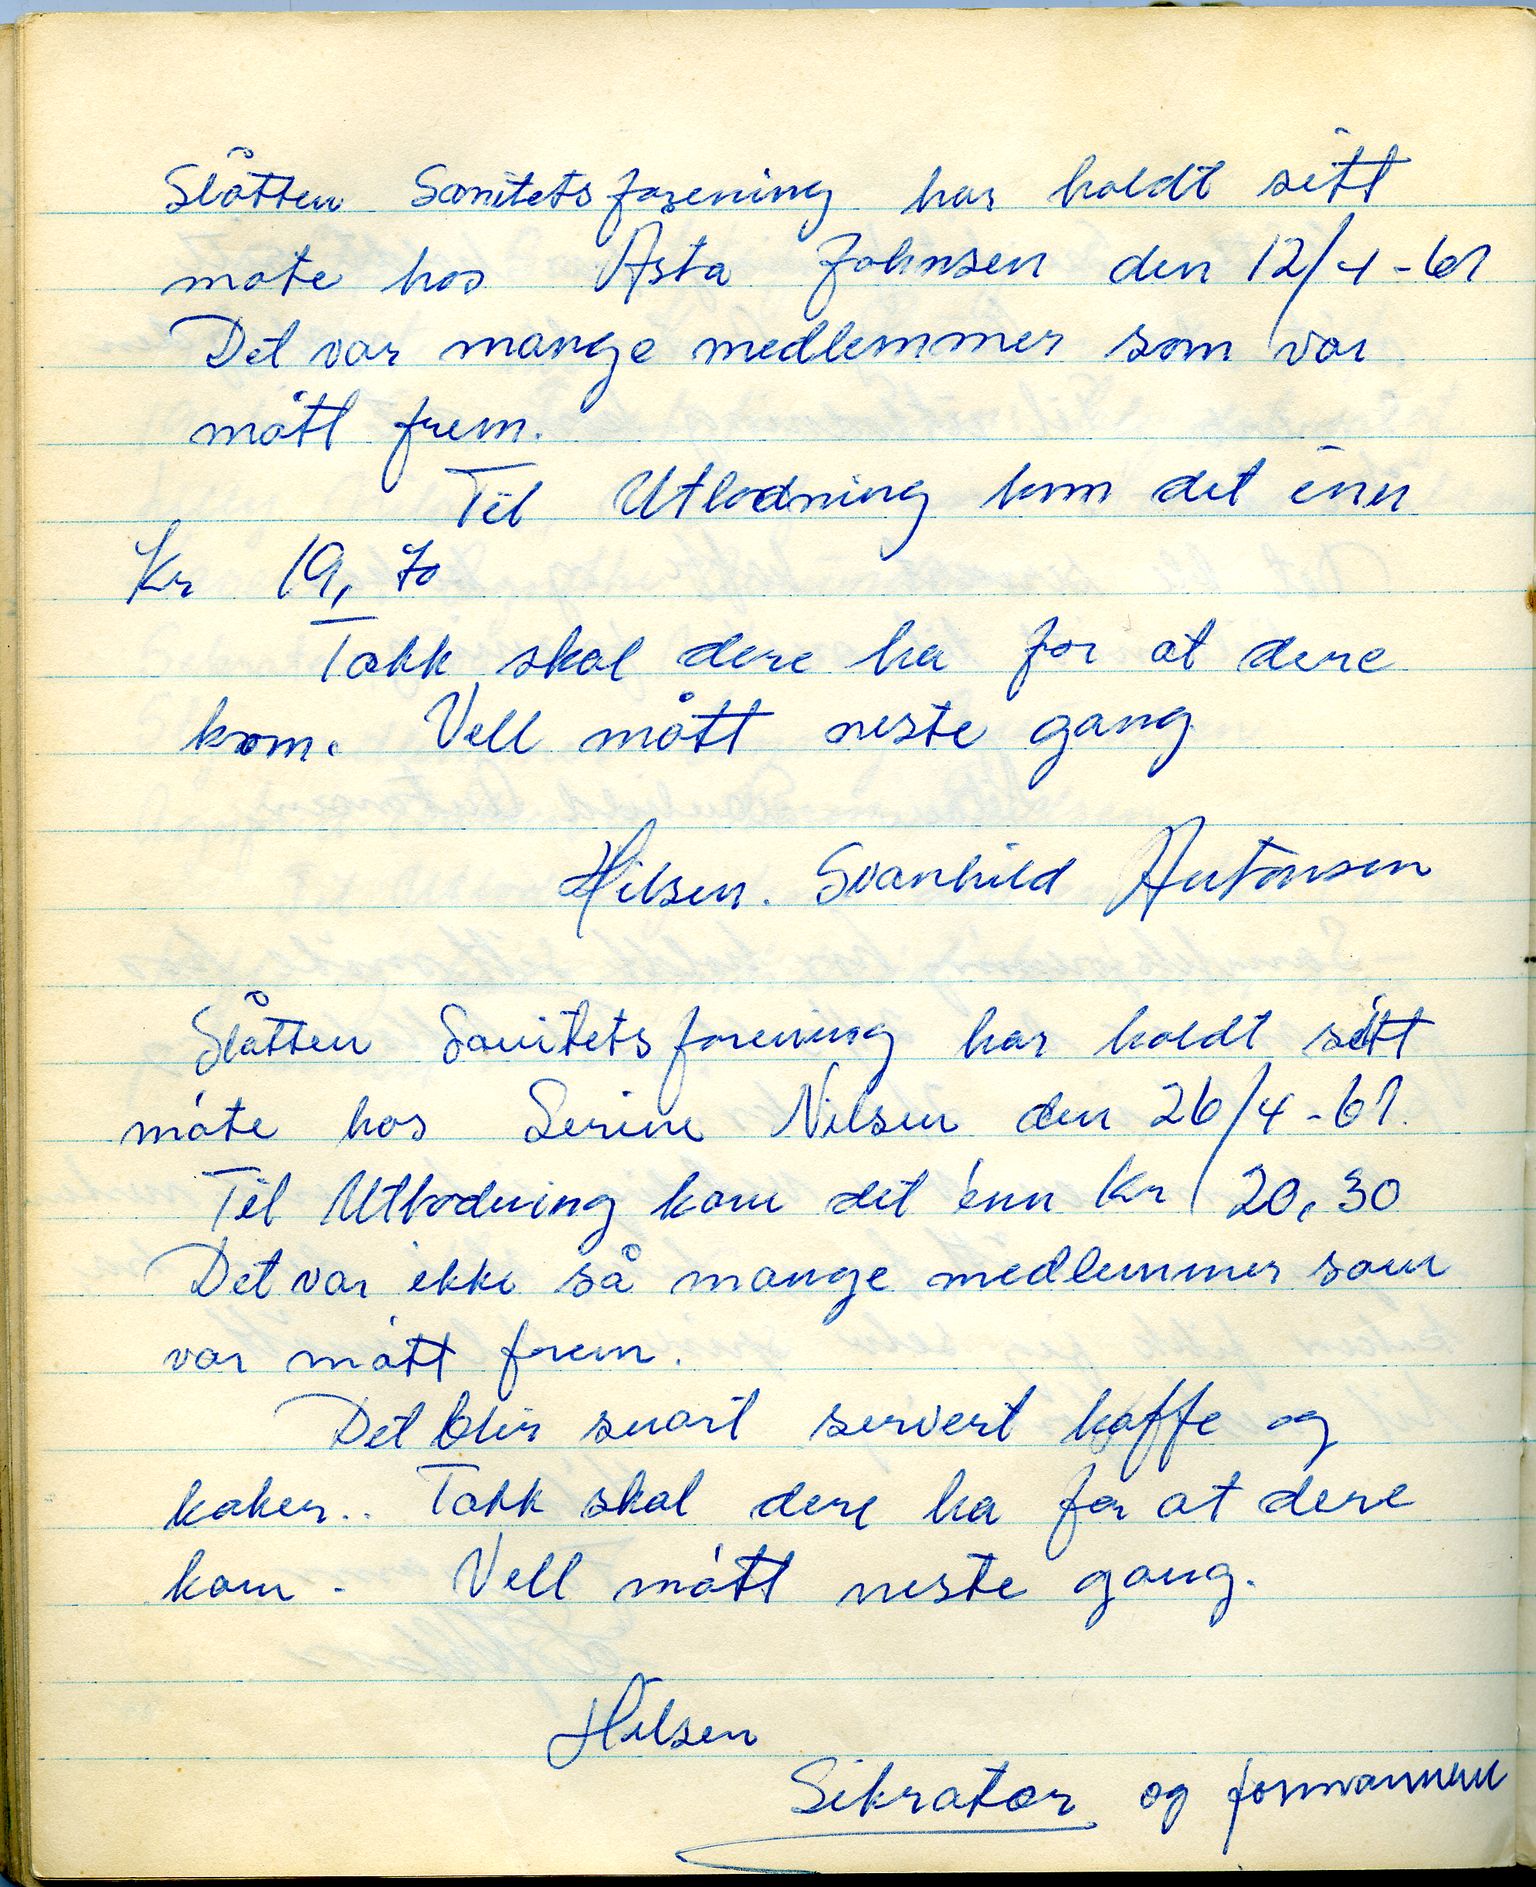 Slåtten Sanitetsforening har holdt sitt
møte hos Åsta Johnsen den 12/4-61
Det var mange medlemmer som var
møtt frem.
Til Utlodning kom det inn
Kr 19,70
Takk skal dere ha for at dere
kom. Vell møtt neste gang
Hilsen. Svanhild Antonsen
Slåtten Sanitetsforening har holdt sitt
møte hos Serine Nilsen den 26/4-61.
Til Utlodning kom det inn Kr 20,30
Det var ikke så mange medlemmer som
var møtt frem.
Det blir snart servert kaffe og
kaker.. Takk skal dere ha for at dere
kom. Vell møtt neste gang.
Hilsen
Sikratær og formannen